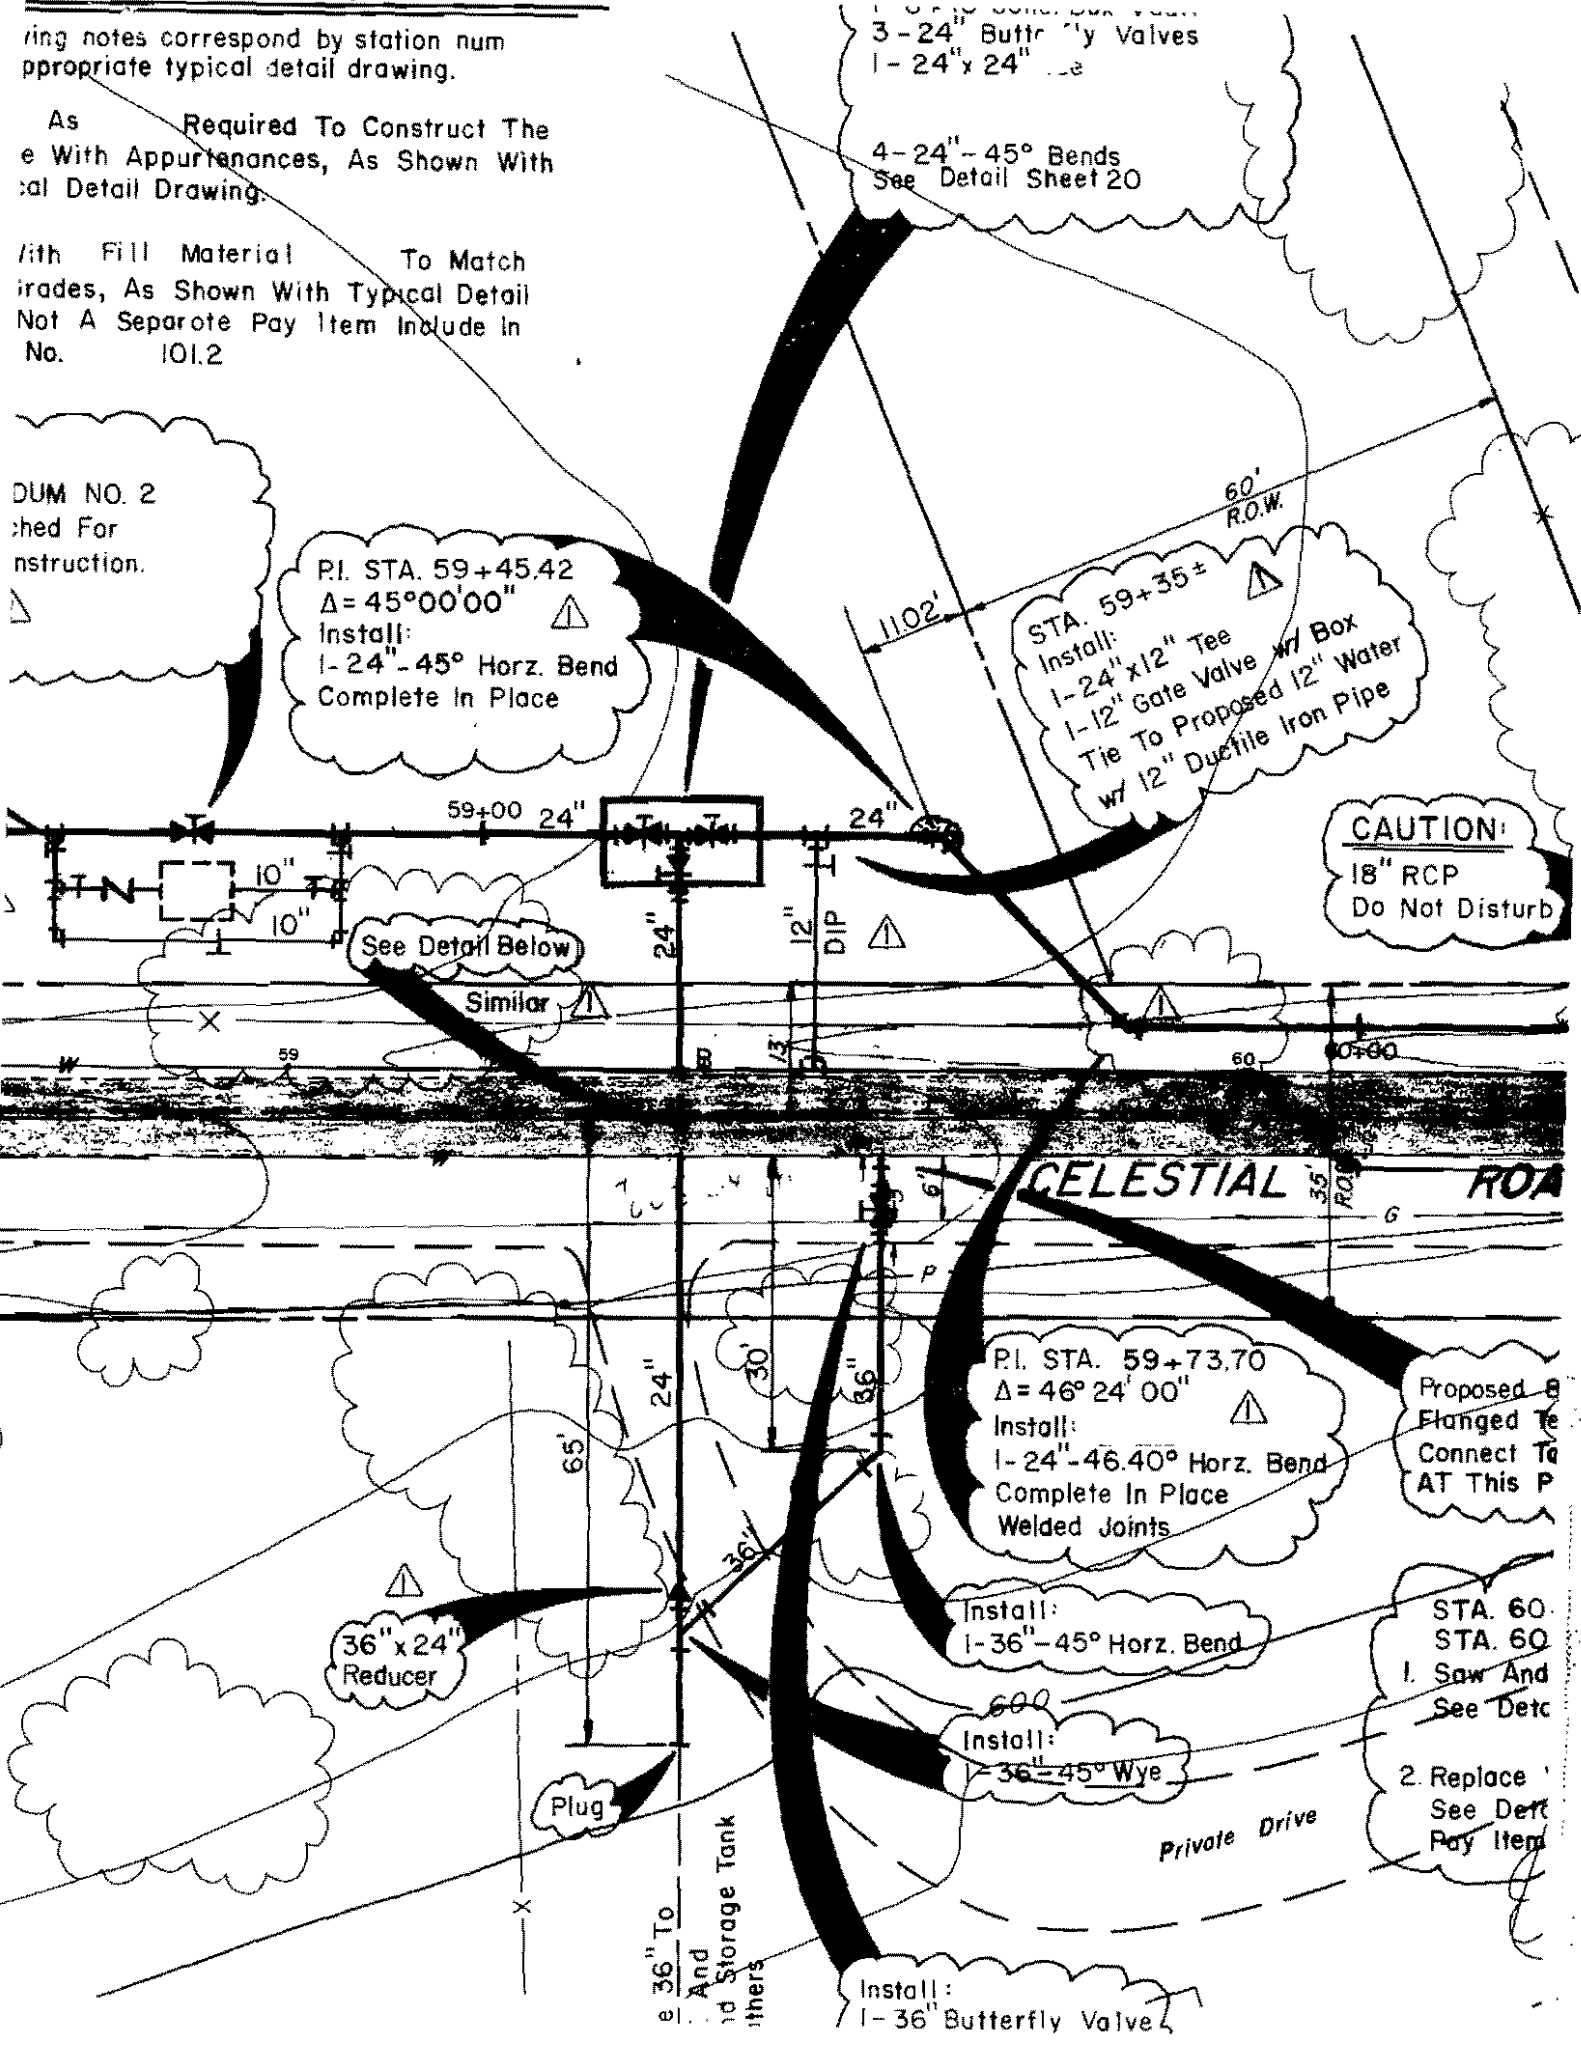 ring notes correspond by station num
ppropriate typical detail drawing.
As Required To Construct The
e With Appurtenances, As Shown With
cal Detail Drawing.
With Fill Material To Match
rades, As Shown With Typical Detail
Not A Separate Pay Item Include In
No. 101.2
3-24" Butt y Valves
1-24" x 24"
4-24"-45° Bends
See Detail Sheet 20
DUM NO. 2
ched For
nstruction.
P.I. STA. 59+45.42
Δ=45°00'00"
Install:
1-24"-45° Horz. Bend
Complete In Place
1
60'
R.O.W.
11.02'
STA. 59+35±
1
Install:
1-24"x12" Tee
1-12" Gate Valve w/ Box
Tie To Proposed 12" Water
w/ 12" Ductile Iron Pipe
CAUTION:
18" RCP
Do Not Disturb
59+00
24"
24"
10"
10"
24"
12"
DIP
1
See Detail Below
Similar
1
1
13'
59
60
60+00
W
W
CELESTIAL ROA
6"
35'
R.O.
G
P
24"
30'
36"
65'
36"
P.I. STA. 59+73.70
Δ=46° 24' 00"
1
Install:
1-24"-46.40° Horz. Bend
Complete In Place
Welded Joints
Proposed 8
Flanged Te
Connect To
AT This P
1
36" x 24"
Reducer
Install:
1-36"-45° Horz. Bend
600
Install:
1-36"-45° Wye
Plug
STA. 60
STA. 60
1. Saw And
See Detc
2. Replace
See Det
Pay Item
Private Drive
e 36" To
And
d Storage Tank
thers
Install:
1-36" Butterfly Valve